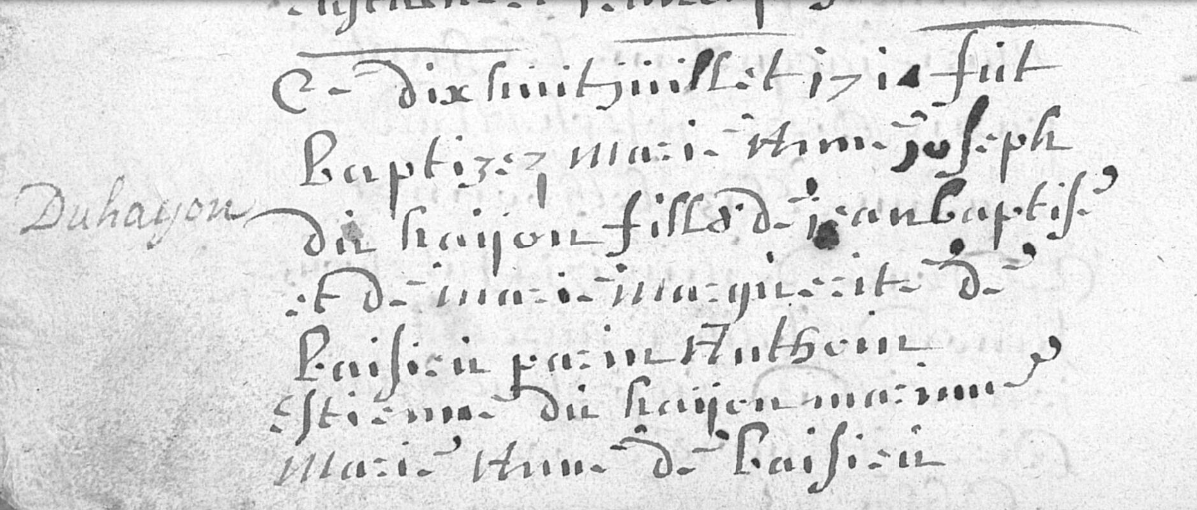 Ce dix huit juillet 171 fut
baptizez marie Anne joseph
Duhayon
du haijon fille de jean baptise
et de marie marguerite de
baisieu parin Anthoin
Estienne du haijon marinne
marie Anne de baisieu